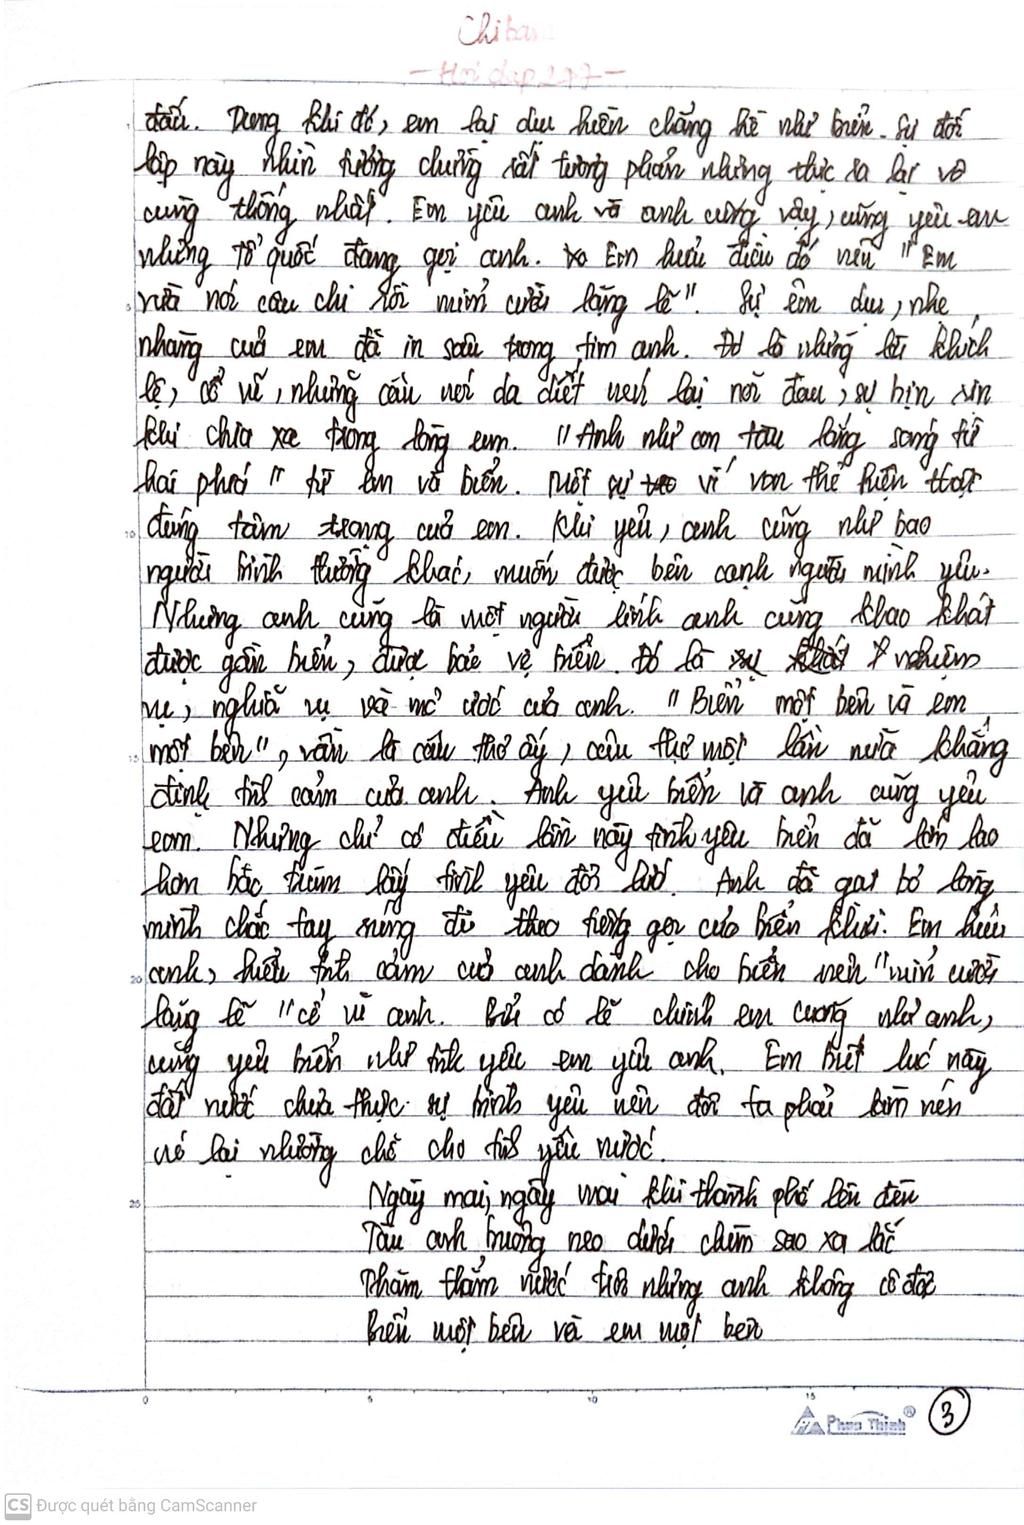 Chiba
- Hoi dap 247 -
đấu. Dung khi đó, em lại dịu hiền chẳng hề như biển. Sự đối
lập này nhìn tưởng chừng rất tương phản nhưng thực ra lại vô
cùng thống nhất. Em yêu anh và anh cũng vậy, cũng yêu em
nhưng Tổ quốc đang gọi anh. Em hiểu điều đó nên "Em
vừa nói câu chi rồi mỉm cười lặng lẽ". Sự êm dịu, nhẹ
nhàng của em đã in sâu trong tim anh. Đó là những lời khích
lệ, cổ vũ, những câu nói da diết nén lại nỗi đau, sự bịn rịn
khi chia xa trong lòng em. "Anh như con tàu lắng sóng từ
hai phía" từ em và biển. Một sự ví von thể hiện thật
đúng tâm trạng của em. Khi yêu, anh cũng như bao
người bình thường khác, muốn được bên cạnh người mình yêu.
Nhưng anh cũng là một người lính anh cũng khao khát
được gần biển, được bảo vệ biển. Đó là nhiệm
vụ, nghĩa vụ và mơ ước của anh. "Biển một bên và em
một bên", vẫn là câu thơ ấy, câu thơ một lần nữa khẳng
định tình cảm của anh. Anh yêu biển và anh cũng yêu
em. Nhưng chỉ có điều lần này tình yêu biển đã lớn lao
hơn bao trùm lấy tình yêu đôi lứa. Anh đã gạt bỏ lòng
mình chắc tay súng đi theo tiếng gọi của biển khơi. Em hiểu
anh, hiểu tình cảm của anh dành cho biển nên "mỉm cười
lặng lẽ" cổ vũ anh. Bởi có lẽ chính em cũng như anh,
cũng yêu biển như tình yêu em yêu anh. Em biết lúc này
đất nước chưa thực sự bình yên nên đôi ta phải làm nén
nó lại nhường chỗ cho tình yêu nước.
Ngày mai, ngày mai khi thành phố lên đèn
Tàu anh buông neo dưới chùm sao xa lắc
Thăm thẳm nước trôi nhưng anh không cô độc
Biển một bên và em một bên
0 5 10 15
Phan Thinh®
3
CS Được quét bằng CamScanner